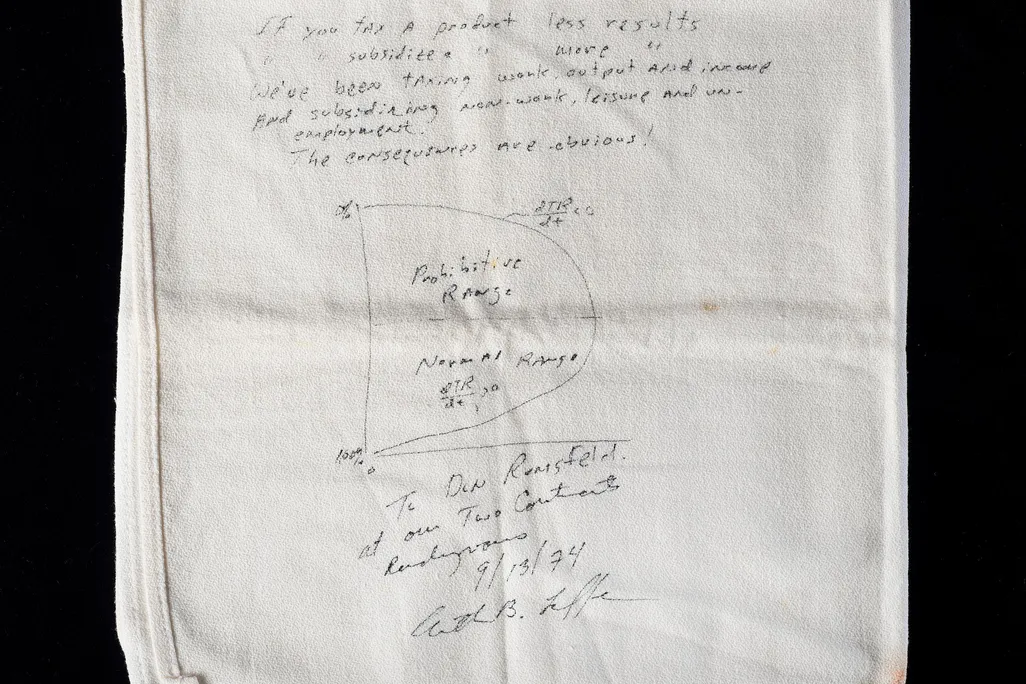 If you tax a product less results
" " subsidize " " more "
We've been taxing work, output and income
and subsidizing non-work, leisure and un-
employment.
The consequences are obvious!
0%
dTR/dt < 0
Prohibitive
Range
Normal Range
dTR/dt > 0
100%
0
To Don Rumsfeld
at our Two Continents
Rendezvous
9/13/74
Arthur B. Laffer